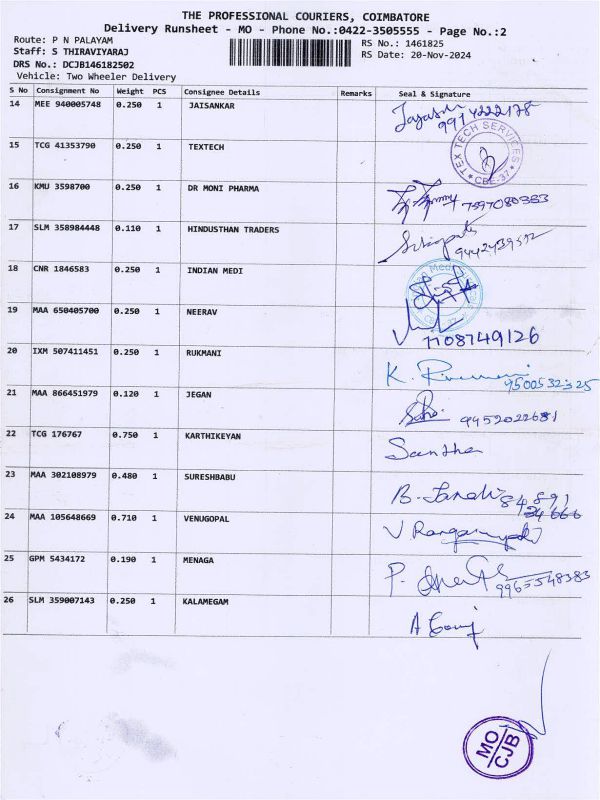 THE PROFESSIONAL COURIERS, COIMBATORE
Delivery Runsheet - MO - Phone No.:0422-3505555 - Page No.:2
Route: P N PALAYAM
RS No.: 1461825
Staff: S THIRAVIYARAJ
RS Date: 20-Nov-2024
DRS No.: DCJB146182502
Vehicle: Two Wheeler Delivery
S No Consignment No Weight PCS Consignee Details Remarks Seal & Signature
14 MEE 940005748 0.250 1 JAISANKAR
15 TCG 41353790 0.250 1 TEXTECH
TEX TECH SERVICES
CBE-37
16 KMU 3598700 0.250 1 DR MONI PHARMA 7597080383
17 SLM 358984448 0.110 1 HINDUSTHAN TRADERS
18 CNR 1846583 0.250 1 INDIAN MEDI
19 MAA 650405700 0.250 1 NEERAV 7708749126
20 IXM 507411451 0.250 1 RUKMANI K. 9500532325
21 MAA 866451979 0.120 1 JEGAN 9952022681
22 TCG 176767 0.750 1 KARTHIKEYAN Santha
23 MAA 302108979 0.480 1 SURESHBABU B. 84891
24 MAA 105648669 0.710 1 VENUGOPAL V
25 GPM 5434172 0.190 1 MENAGA P. 9965548383
26 SLM 359007143 0.250 1 KALAMEGAM A
MO
CJB